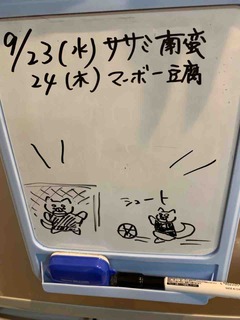 9/23(水)ササミ南蛮
24(木)マーボー豆腐
シュート